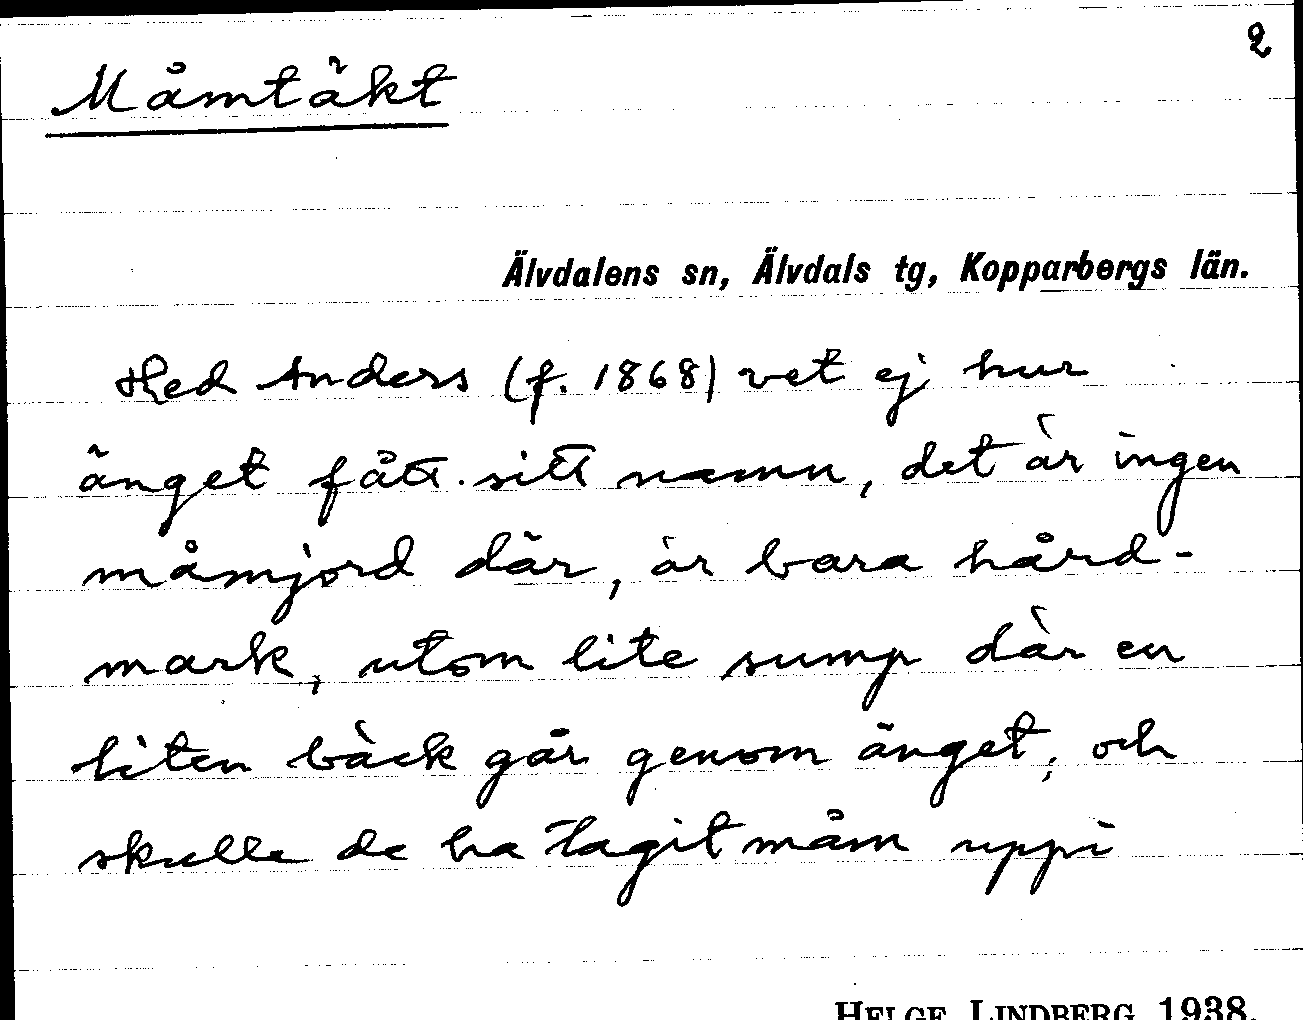 2
Måmtäkt
Älvdalens sn, Älvdals tg, Kopparbergs län.
Hed Anders (f. 1868) vet ej hur
änget fått sitt namn, det är ingen
måmjord där, är bara hård-
mark, utom lite sump där en
liten bäck går genom änget, och
skulle de ha tagit måm uppi
HELGE LINDBERG 1938.